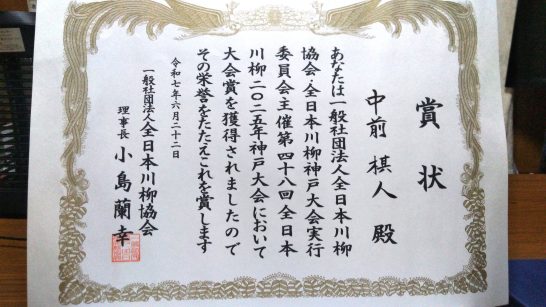 賞状
中前棋人殿
あなたは一般社団法人全日本川柳
協会・全日本川柳神戸大会実行
委員会主催第四十八回全日本
川柳二〇二五年神戸大会において
大会賞を獲得されましたので
その栄誉をたたえこれを賞します
令和七年六月二十二日
一般社団法人全日本川柳協会
理事長 小島蘭幸